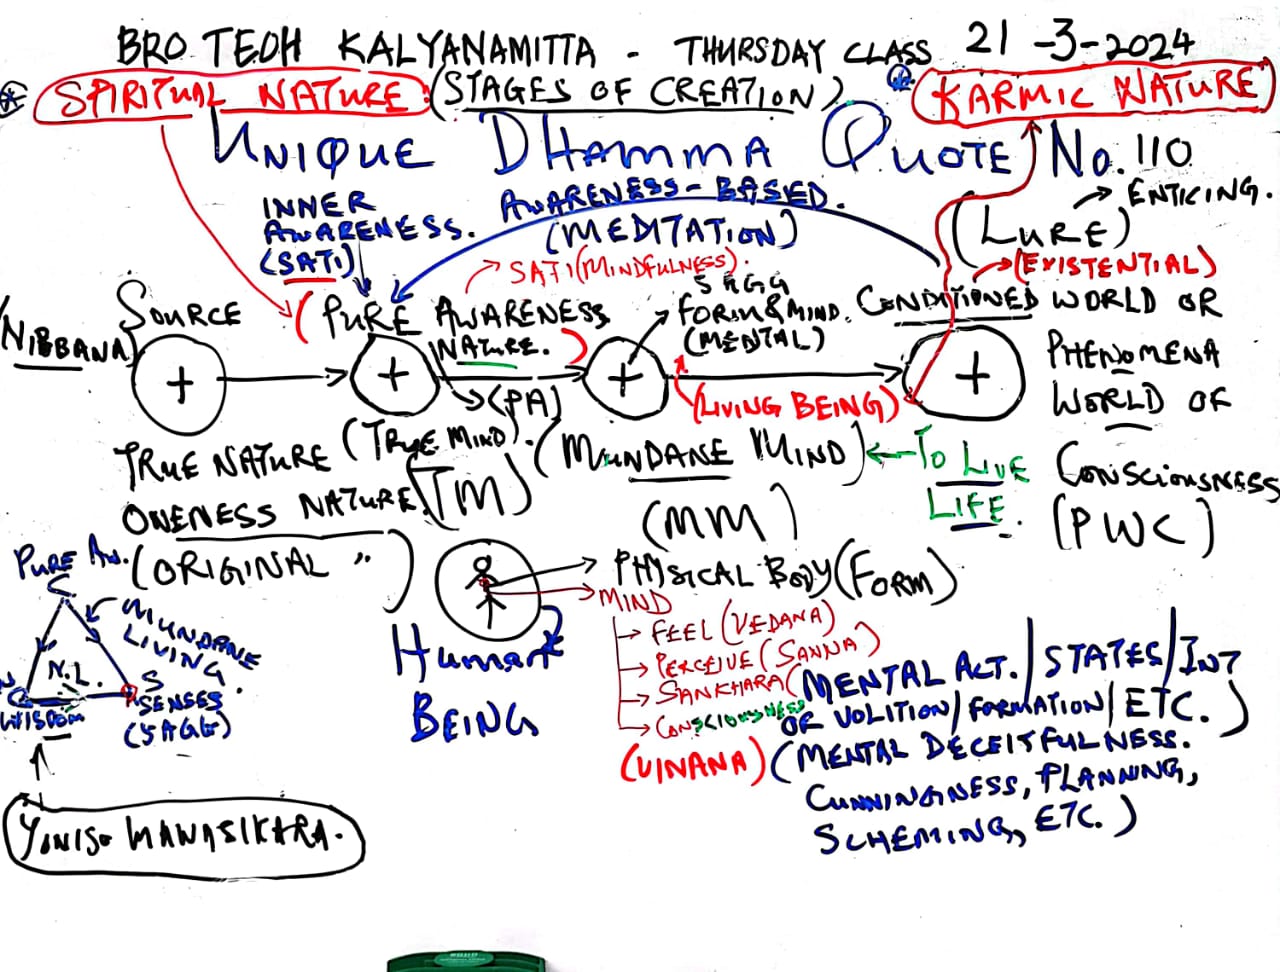 BRO TEOH KALYANAMITTA - THURSDAY CLASS 21-3-2024
SPIRITUAL NATURE (STAGES OF CREATION) KARMIC NATURE
UNIQUE DHAMMA QUOTE No. 110
INNER AWARENESS. (SATI)
AWARENESS-BASED. (MEDITATION)
(LURE) ENTICING.
(EXISTENTIAL)
SATI (MINDFULNESS).
NIBBANA
SOURCE
(PURE AWARENESS NATURE.)
5 AGG
FORM & MIND.
(MENTAL)
CONDITIONED WORLD OR
PHENOMENA
WORLD OF
CONSCIOUSNESS
(PWC)
+ + + +
(PA)
(LIVING BEING)
TRUE NATURE (TRUE MIND).
(TM)
(MUNDANE MIND)
(MM)
TO LIVE
LIFE.
ONENESS NATURE.
(ORIGINAL ")
PURE AW.
MUNDANE
LIVING
N.L.
S
SENSES
(5 AGG)
WISDOM
YONISO MANASIKARA.
HUMAN
BEING
PHYSICAL BODY (FORM)
MIND
FEEL (VEDANA)
PERCEIVE (SANNA)
SANKHARA (MENTAL ACT. / STATES / INT
OR VOLITION / FORMATION / ETC.)
CONSCIOUSNESS
(VINANA) (MENTAL DECEITFULNESS.
CUNNINGNESS, PLANNING,
SCHEMING, ETC.)